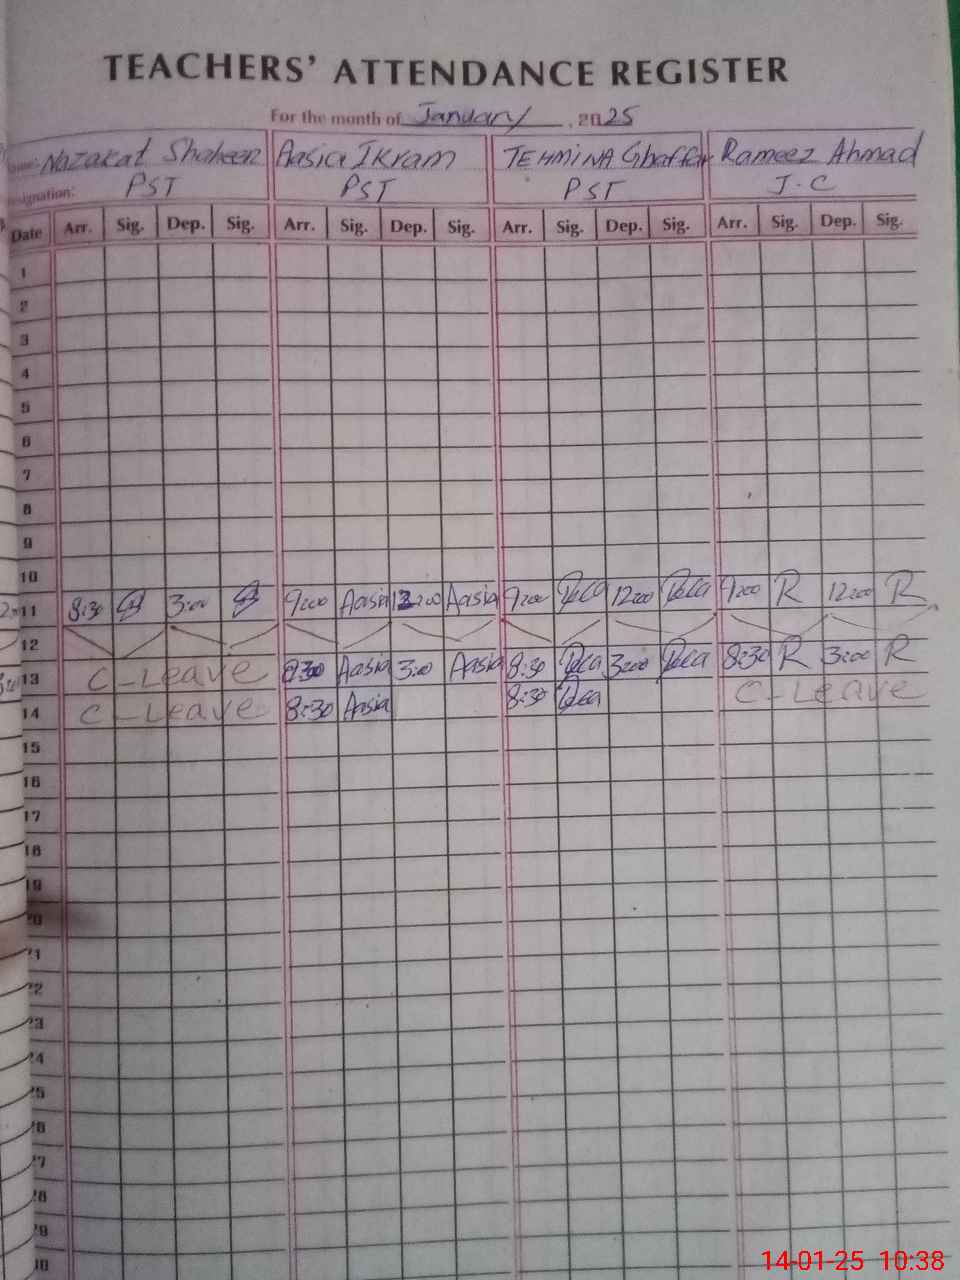 TEACHERS' ATTENDANCE REGISTER
For the month of January, 2025
Nazakat Shaheen Aasia Ikram TEHMINA Ghaffar Rameez Ahmad
Designation: PST PST PST J.C
Date Arr. Sig. Dep. Sig. Arr. Sig. Dep. Sig. Arr. Sig. Dep. Sig. Arr. Sig. Dep. Sig.
1
2
3
4
5
6
7
8
9
10
11 8:30 3:00 9:00 Aasia 12:00 Aasia 9:00 12:00 9:00 R 12:00 R
12
13 C-Leave 8:30 Aasia 3:00 Aasia 8:30 3:00 8:30 R 3:00 R
14 C-Leave 8:30 Aasia 8:30 C-Leave
15
16
17
18
19
20
21
22
23
24
25
26
27
28
29
30
14-01-25 10:38